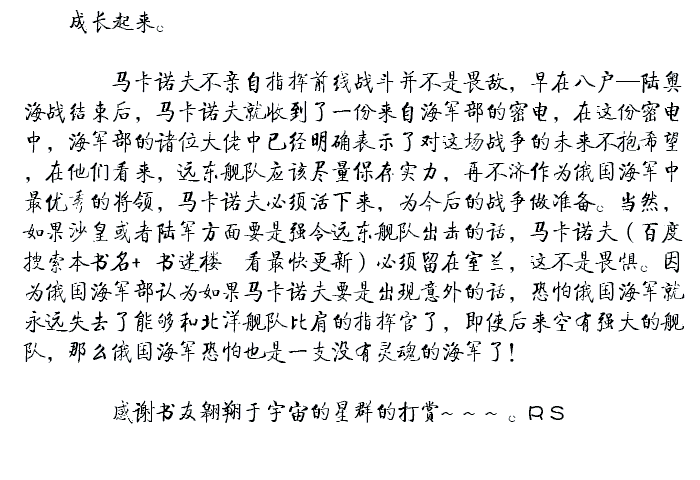 成长起来。
马卡诺夫不亲自指挥前线战斗并不是畏敌，早在八户—陆奥
海战结束后，马卡诺夫就收到了一份来自海军部的密电，在这份密电
中，海军部的诸位大佬中已经明确表示了对这场战争的未来不抱希望
，在他们看来，远东舰队应该尽量保存实力，再不济作为俄国海军中
最优秀的将领，马卡诺夫必须活下来，为今后的战争做准备。当然，
如果沙皇或者陆军方面要是强令远东舰队出击的话，马卡诺夫（百度
搜索本书名+ 书迷楼 看最快更新）必须留在室兰，这不是畏惧。因
为俄国海军部认为如果马卡诺夫要是出现意外的话，恐怕俄国海军就
永远失去了能够和北洋舰队比肩的指挥官了，即使后来空有强大的舰
队，那么俄国海军恐怕也是一支没有灵魂的海军了！
感谢书友翱翔于宇宙的星群的打赏~~~。RS